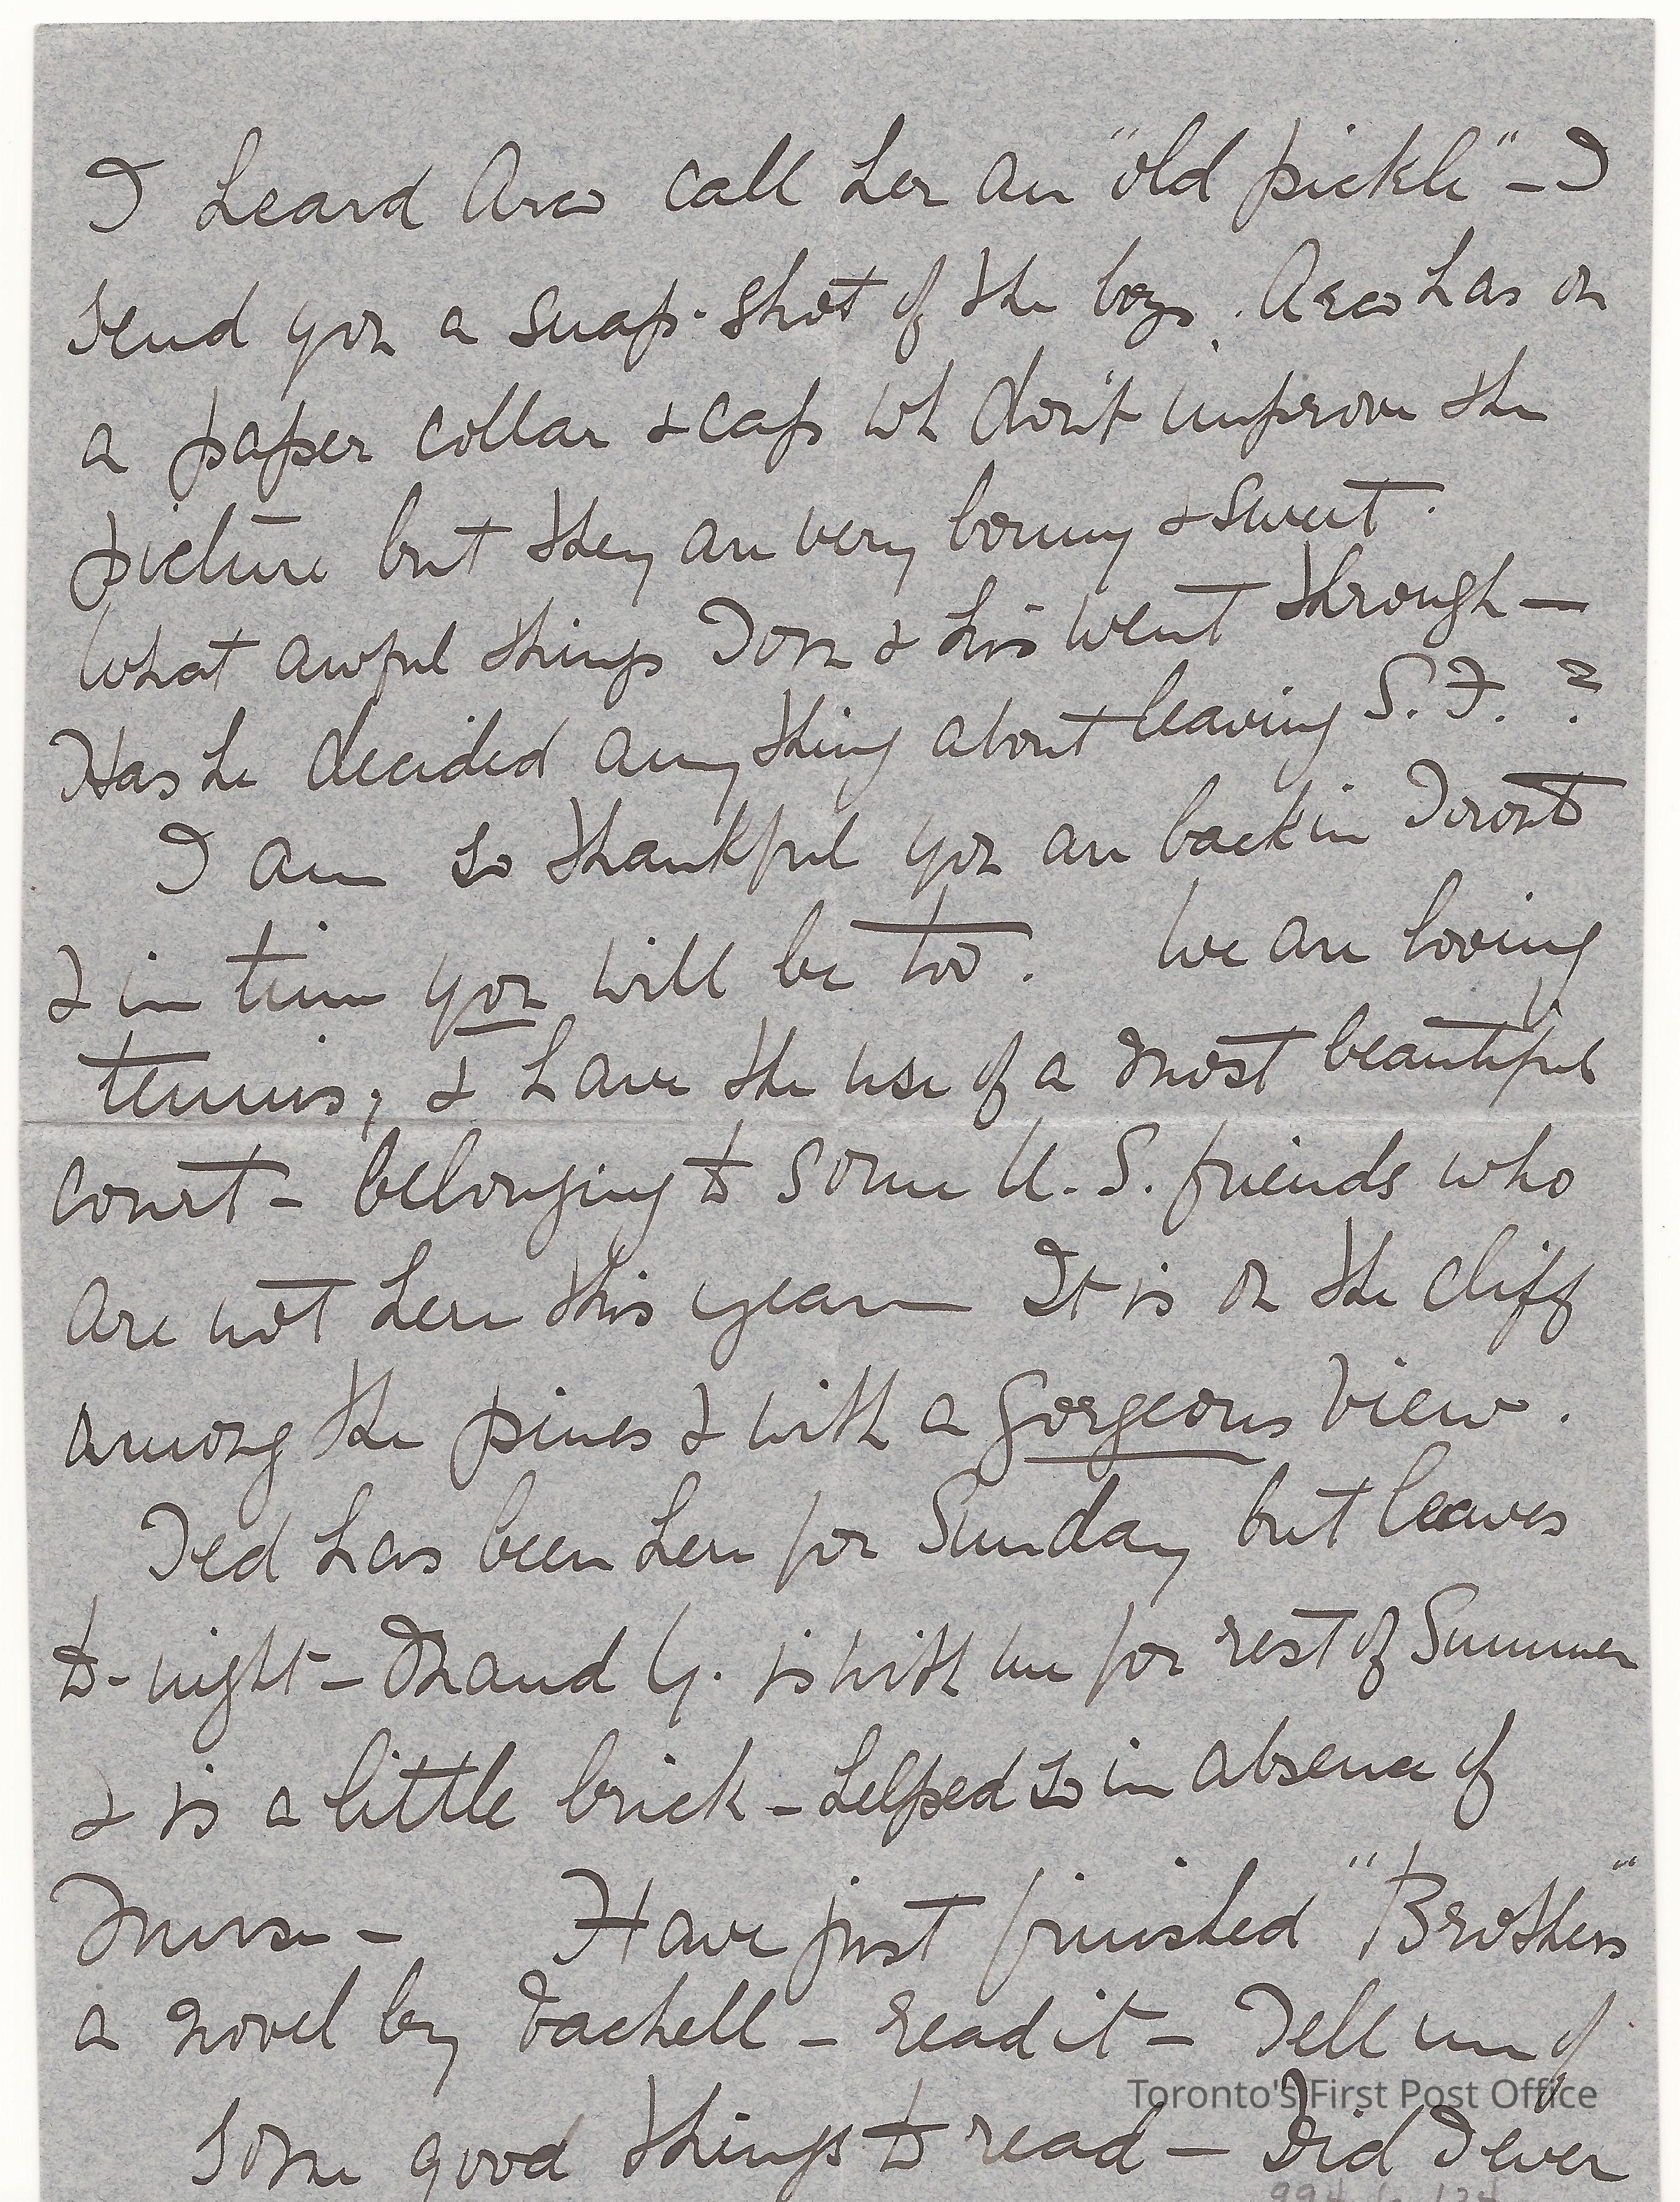 I heard Arco call her an "old pickle" – I
send you a snap-shot of the boys. Arco has on
a paper collar & cap wh don't improve the
picture but they are very bonny & sweet.
What awful things Tom & his went through –
Has he decided anything about leaving S.F.?
I am so thankful you are back in Toronto
& in time you will be too. We are loving
tennis, & have the use of a most beautiful
court – belonging to some U.S. friends who
are not here this year – It is on the cliff
among the pines & with a gorgeous view.
Ted has been here for Sunday but leaves
to-night – Maud G. is with me for rest of Summer
& is a little brick – helped so in absence of
nurse – Have just finished "Brothers"
a novel by Vachell – read it – Tell me of
some good things to read – Did I ever
Toronto's First Post Office